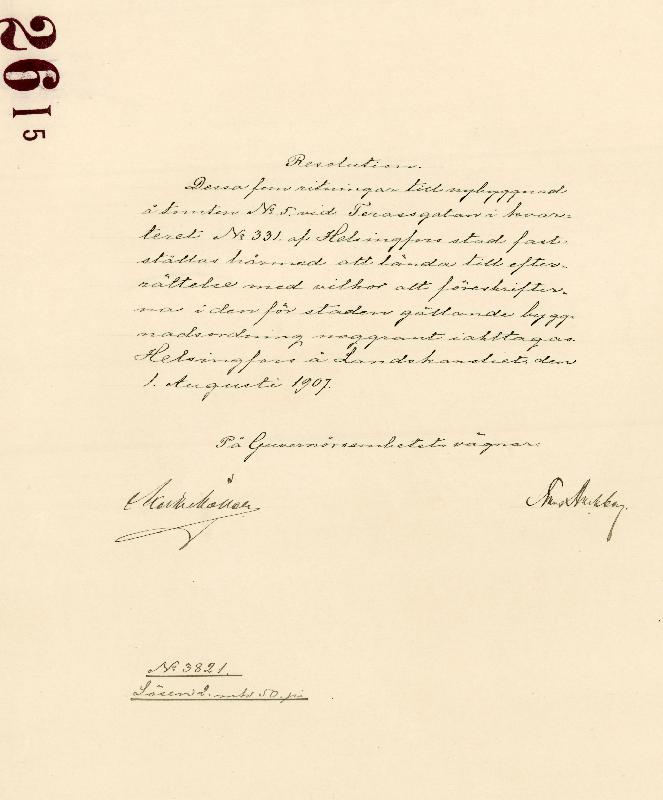 2615
Resolution.
Dessa fem ritningar till nybyggnad
å tomten No 5. vid Terassgatan i kvar-
teret No 331. af Helsingfors stad fast-
ställas härmed att lända till efter-
rättelse med vilkor att föreskrifter-
na i den för staden gällande bygg-
nadsordning noggrant iakttagas.
Helsingfors å Landskansliet, den
1. Augusti 1907.
På Guvernörsembetets vägnar:
No 3821.
Lösen 2. mk 50. pi